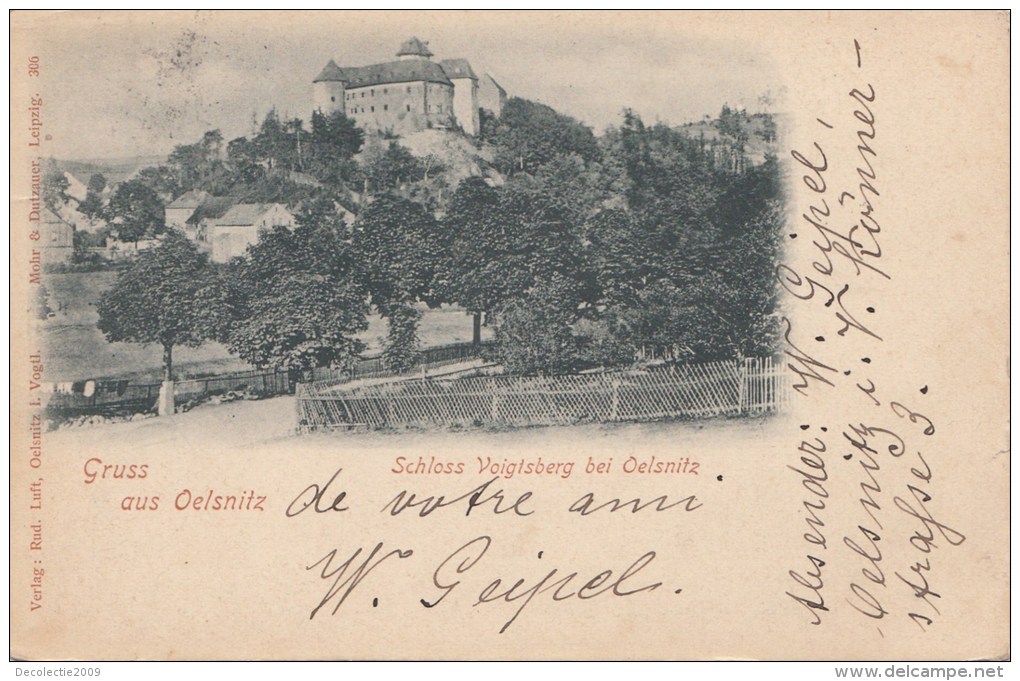 Verlag: Rud. Luft, Oelsnitz i. Vogtl. Mohr & Dutzauer, Leipzig. 306
Gruss
aus Oelsnitz
Schloss Voigtsberg bei Oelsnitz
de votre ami
W. Geipel.
Absender: W. Geipel,
Oelsnitz i. V. Körner-
strafse 3.
Decolectie2009
www.delcampe.net